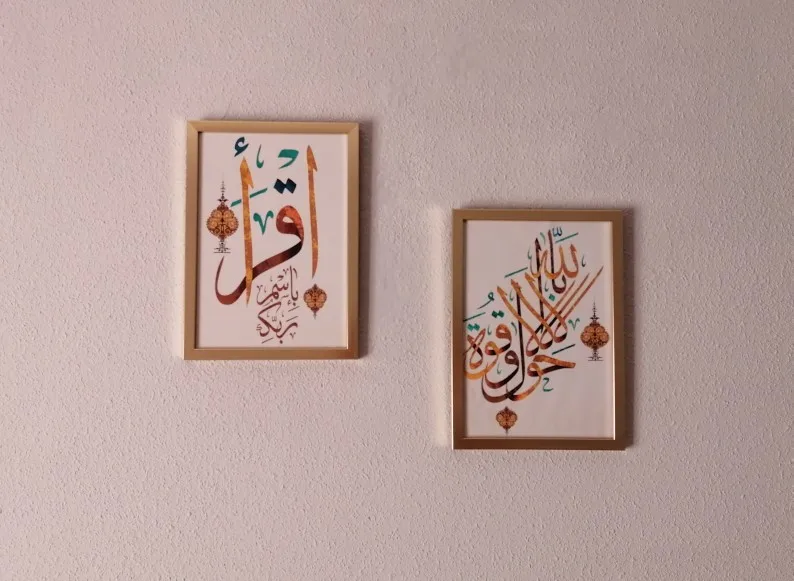 اقرأ
بِاسْمِ
رَبِّكَ
لا حول ولا قوة إلا بالله